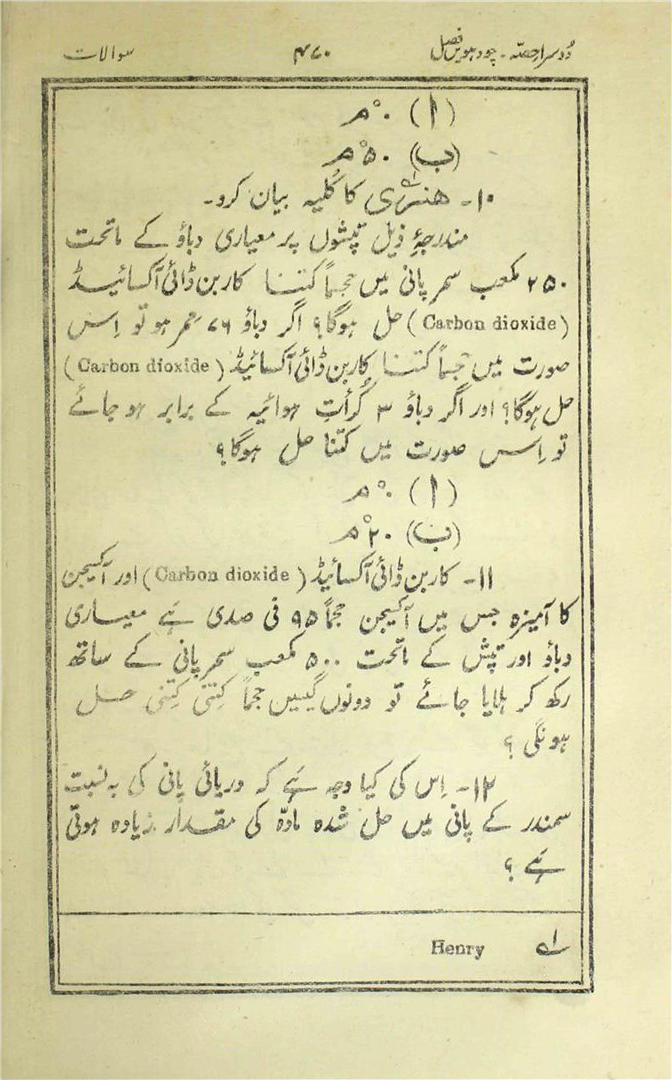 دُوسرا حصّہ ۔ چودہویں فصل ۴۷۰ سوالات
(ا) ۰°م
(ب) ۵۰°م
۱۰۔ ھنری؂۱ کا کُلیہ بیان کرو۔
مندرجۂ ذیل تپشوں پر معیاری دباؤ کے ماتحت
۲۵۰ مکعب سمر پانی میں حجماً کتنا کاربن ڈائی آکسائیڈ
(Carbon dioxide) حل ہوگا؟ اگر دباؤ ۷۶ سمر ہو تو اِس
صورت میں حجماً کتنا کاربن ڈائی آکسائیڈ (Carbon dioxide)
حل ہوگا؟ اور اگر دباؤ ۳ کُرأتِ ہوائیہ کے برابر ہو جائے
تو اِس صورت میں کتنا حل ہوگا؟
(ا) ۰°م
(ب) ۲۰°م
۱۱۔ کاربن ڈائی آکسائیڈ (Carbon dioxide) اور آکسیجن
کا آمیزہ جس میں آکسیجن حجماً ۹۵ فی صدی ہَے معیاری
دباؤ اور تپش کے ماتحت ۵۰۰ مکعب سمر پانی کے ساتھ
رکھ کر ہلایا جائے تو دونوں گیسیں حجماً کِتنی کِتنی حل
ہونگی ؟
۱۲۔ اِس کی کیا وجہ ہَے کہ دریائی پانی کی بہ نسبت
سمندر کے پانی میں حل شدہ مادّہ کی مقدار زیادہ ہوتی
ہَے ؟
؂۱ Henry